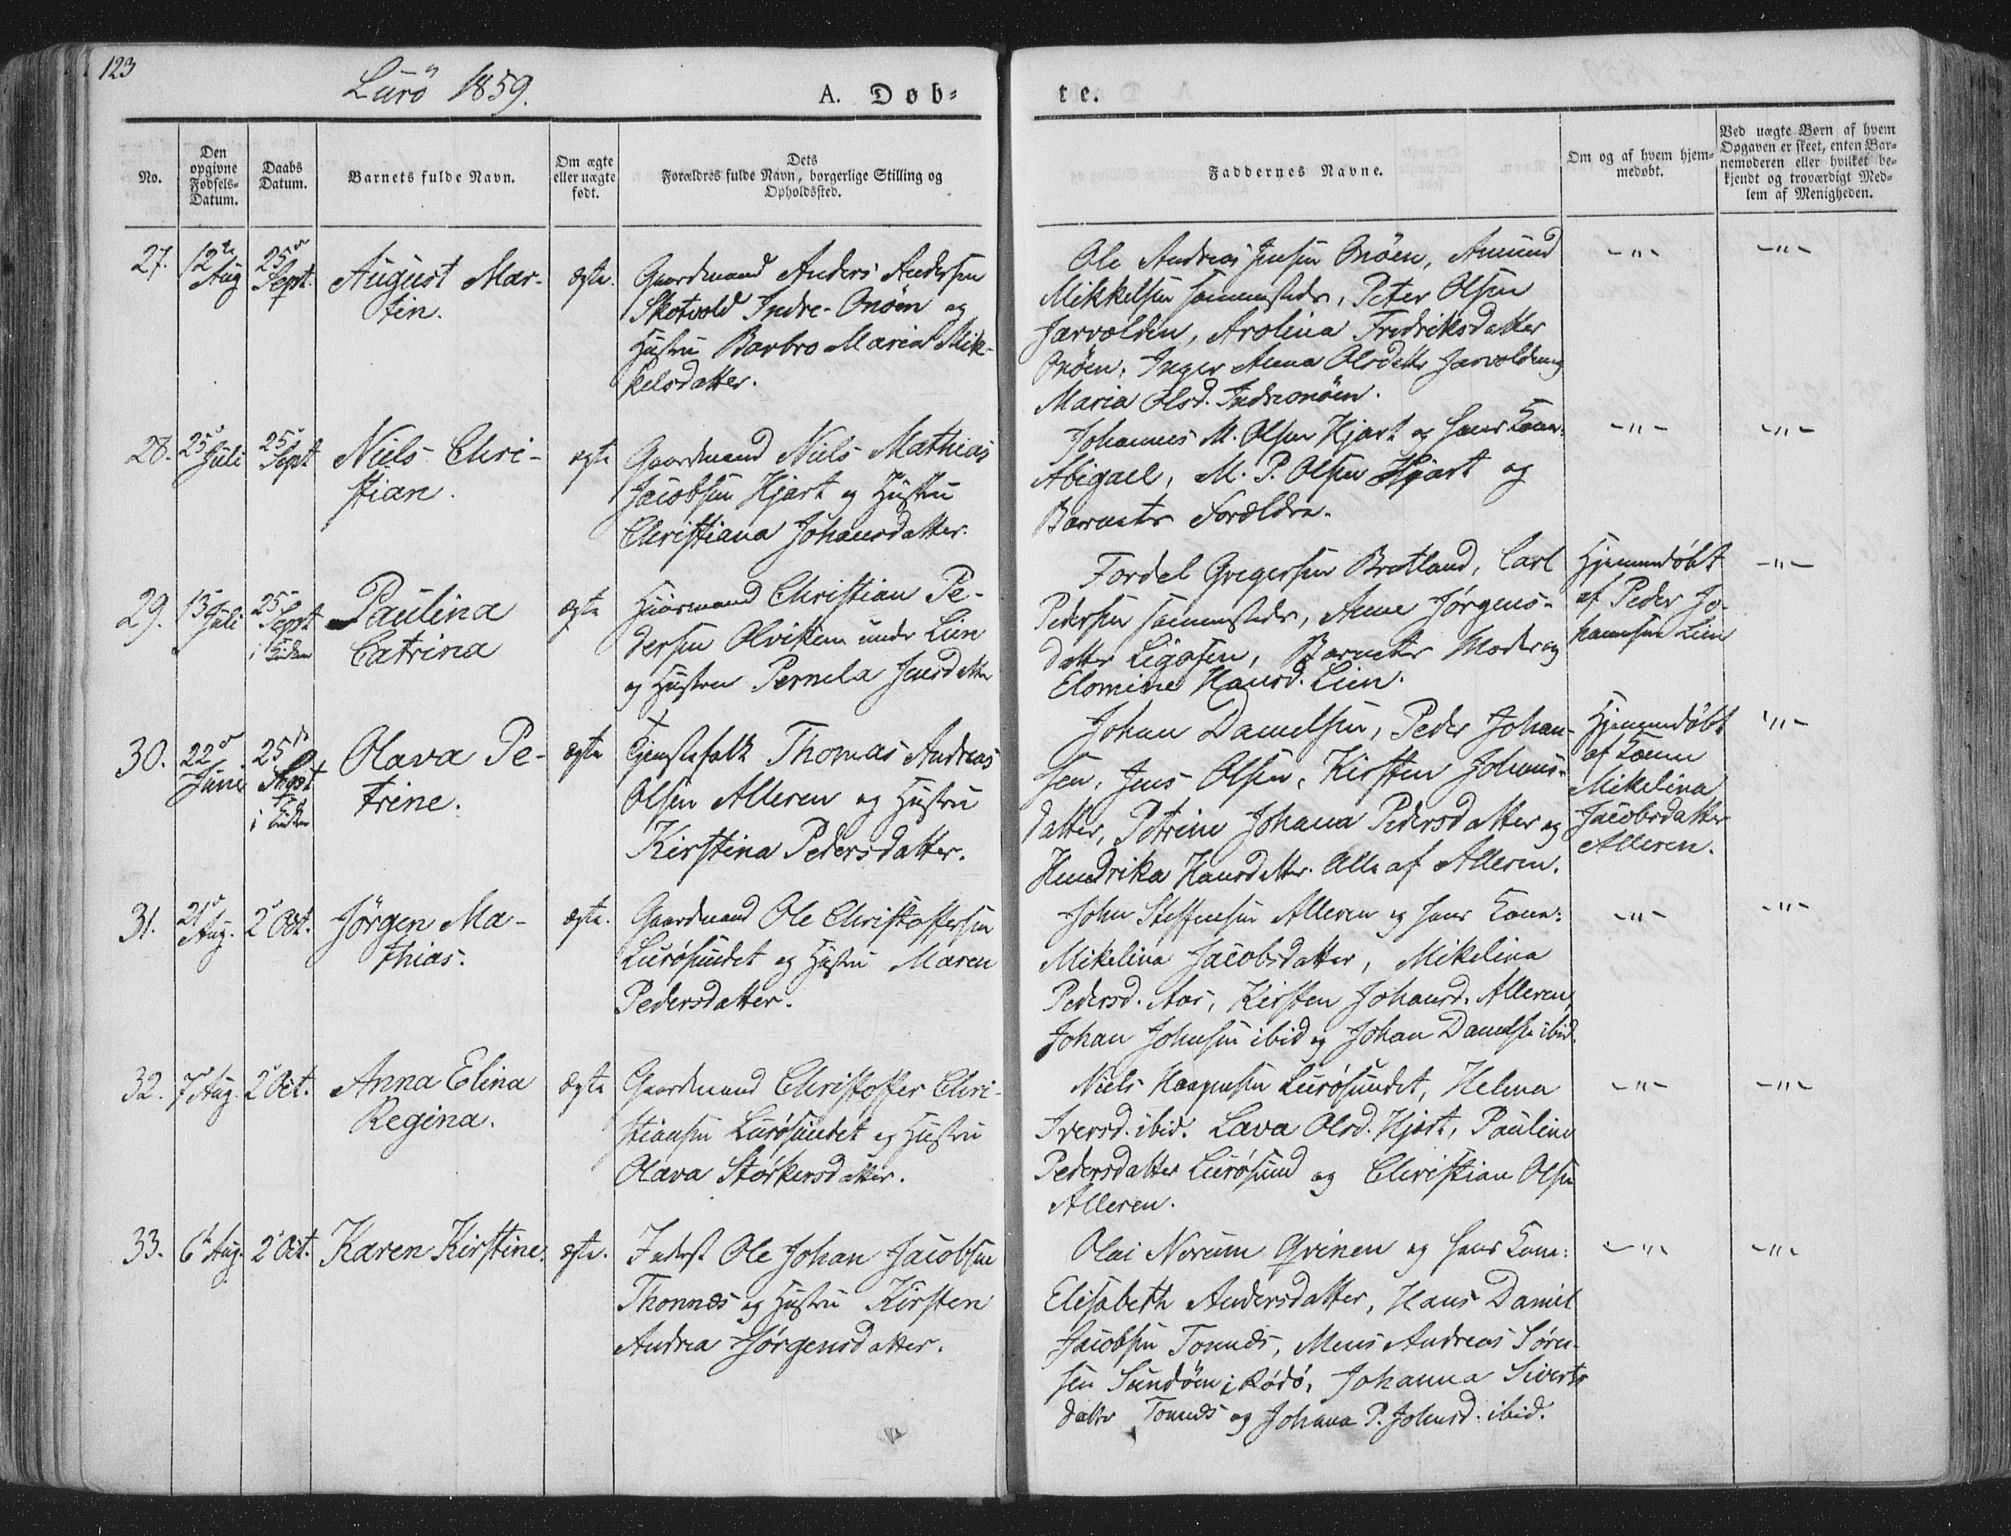 123
Lurö 1859.
A. Døb-
te.
No.
Den opgivne Fødsels-Datum.
Daabs Datum.
Barnets fulde Navn.
Om ægte eller uægte født.
Dets Forældres fulde Navn, borgerlige Stilling og Opholdssted.
Faddernes Navne.
Om og af hvem hjem-medøbt.
Ved uægte Børn af hvem Opgaven er skeet, enten Bar-nemoderen eller hvilket be-kjendt og troværdigt Med-lem af Menigheden.
27. 12te Aug 25de Sept. August Mar-
tin.
ægte.
Gaardmand Anders Andersen
Skotvold Indre-Onöen og
Hustru Barbro Maria Mik-
kelsdatter.
Ole Andreas Jensen Onöen, Amund
Mikkelsen sammesteds, Peter Olsen
Jarvolden, Arolina Fredriksdatter
Onöen, Inger Anna Olsdatter Jarvolden og
Maria Olsd. Indreonöen.
-"-
-"-
28. 25de Juli 25de Sept Niels Chri-
stian.
ægte
Gaardmand Niels Mathias
Jacobsen Hjart og Hustru
Christiana Johansdatter.
Johannes M. Olsen Hjart og hans Kone:
Abigael, M. P. Olsen Hjart og
Barnets Forældre.
-"-
-"-
29. 13 Juli 25 Sept i Kirken
Paulina
Catrina
ægte
Huusmand Christian Pe-
dersen Olviken under Lien
og Hustru Pernela Jensdatter
Fordel Gregersen Bratland, Carl
Pedersen sammesteds, Anne Jørgens-
datter Ligosen, Barnets Moder og
Elomine Hansd. Lien.
Hjemmedøbt
af Peder Jo-
hannsen Lien
-"-
30. 22de Juni 25de Sept i Kirken
Olava Pe-
trine.
ægte
Tjenestefolk Thomas Andreas
Olsen Alleren og Hustru
Kirstina Pedersdatter.
Johan Danielsen, Peder Johan-
sen, Jens Olsen, Kirsten Johans-
datter, Petrine Johana Pedersdatter og
Hendrika Hansdatter. Alle af Alleren.
Hjemmedøbt
af Konen
Mikelina
Jacobsdatter
Alleren.
-"-
31. 21de Aug. 2de Oct. Jörgen Ma-
thias.
ægte.
Gaardmand Ole Christoffersen
Lurösundet og Hustru Maren
Pedersdatter.
John Steffensen Alleren og hans Kone:
Mikelina Jacobsdatter, Mikelina
Pedersd. Aas, Kirsten Johansd. Alleren,
Johan Johnsen ibid og Johan Danielsen ibid.
-"-
-"-
32. 7de Aug. 2de Oct. Anna Elina
Regina.
ægte
Gaardmand Christoffer Chri-
stiansen Lurøsundet og Hustru
Olava Størkersdatter.
Niels Haagensen Lurøsundet, Helena
Iversd. ibid. Lava Olsd. Hjart, Pauline
Pedersdatter Lurøsund og Christian Olsen
Alleren.
-"-
-"-
33. 6te Aug. 2de Oct. Karen Kirstine.
ægte.
Inderst Ole Johan Jacobsen
Thonnæs og Hustru Kirsten
Andrea Jörgensdatter.
Olai Norum Qvinen og hans Kone:
Elisabeth Andersdatter, Hans Daniel
Jacobsen Tonnes, Mens Andreas Sören-
sen Sundöen i Rödö, Johanna Siverts
datter Tonnes og Johana P. Johnsd. ibid.
-"-
-"-